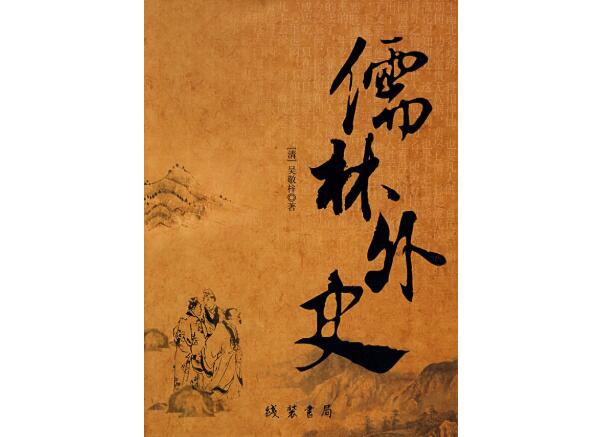 儒林外史
[清]吴敬梓◎著
线装书局